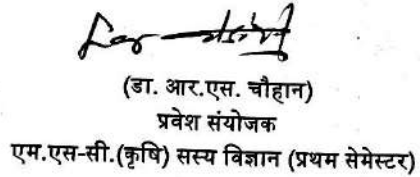 (डा. आर.एस. चौहान)
प्रवेश संयोजक
एम.एस-सी.(कृषि) सस्य विज्ञान (प्रथम सेमेस्टर)